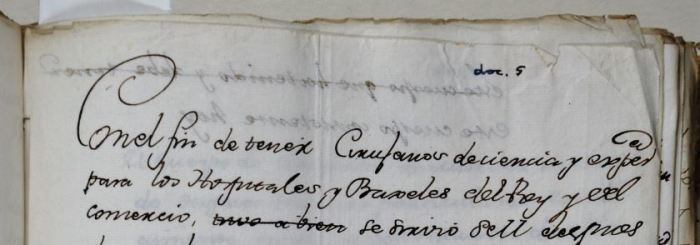 doc. 5
Con el fin de tener Cirujanos de ciencia y exper.ª
para los Hospitales y Baxeles del Rey y del
comercio, tuvo a bien se sirvió S.M. despues